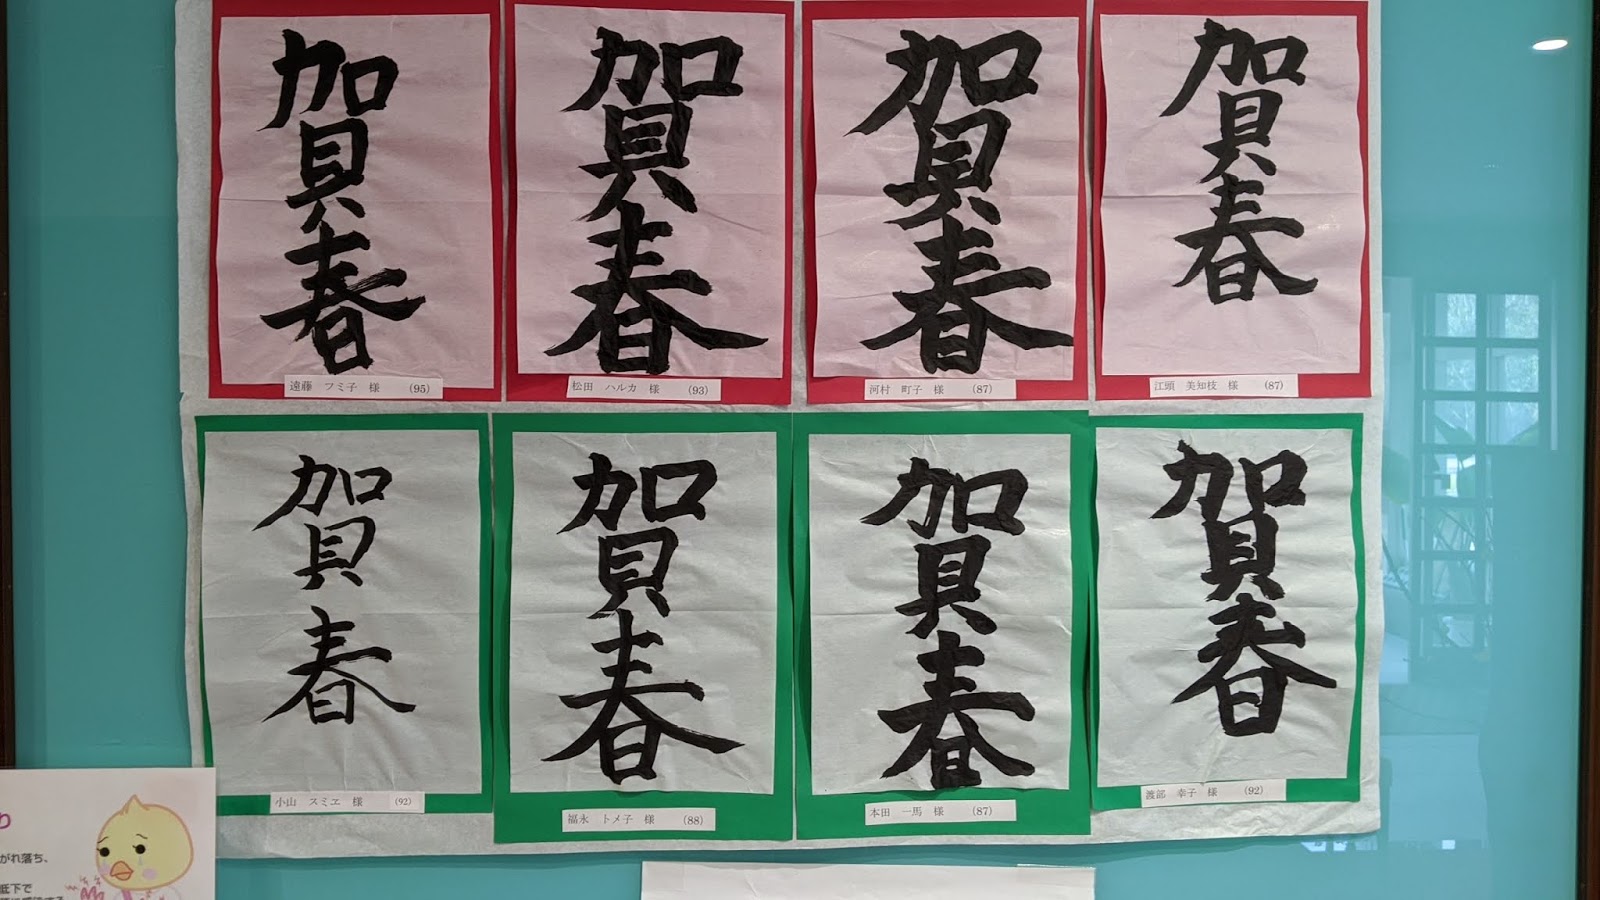 賀春
賀春
賀春
賀春
遠藤 フミ子 様 (95)
松田 ハルカ 様 (93)
河村 町子 様 (87)
江頭 美知枝 様 (87)
賀春
賀春
賀春
賀春
小山 スミヱ 様 (92)
福永 トメ子 様 (88)
本田 一馬 様 (87)
渡部 幸子 様 (92)
がれ落ち、
低下で